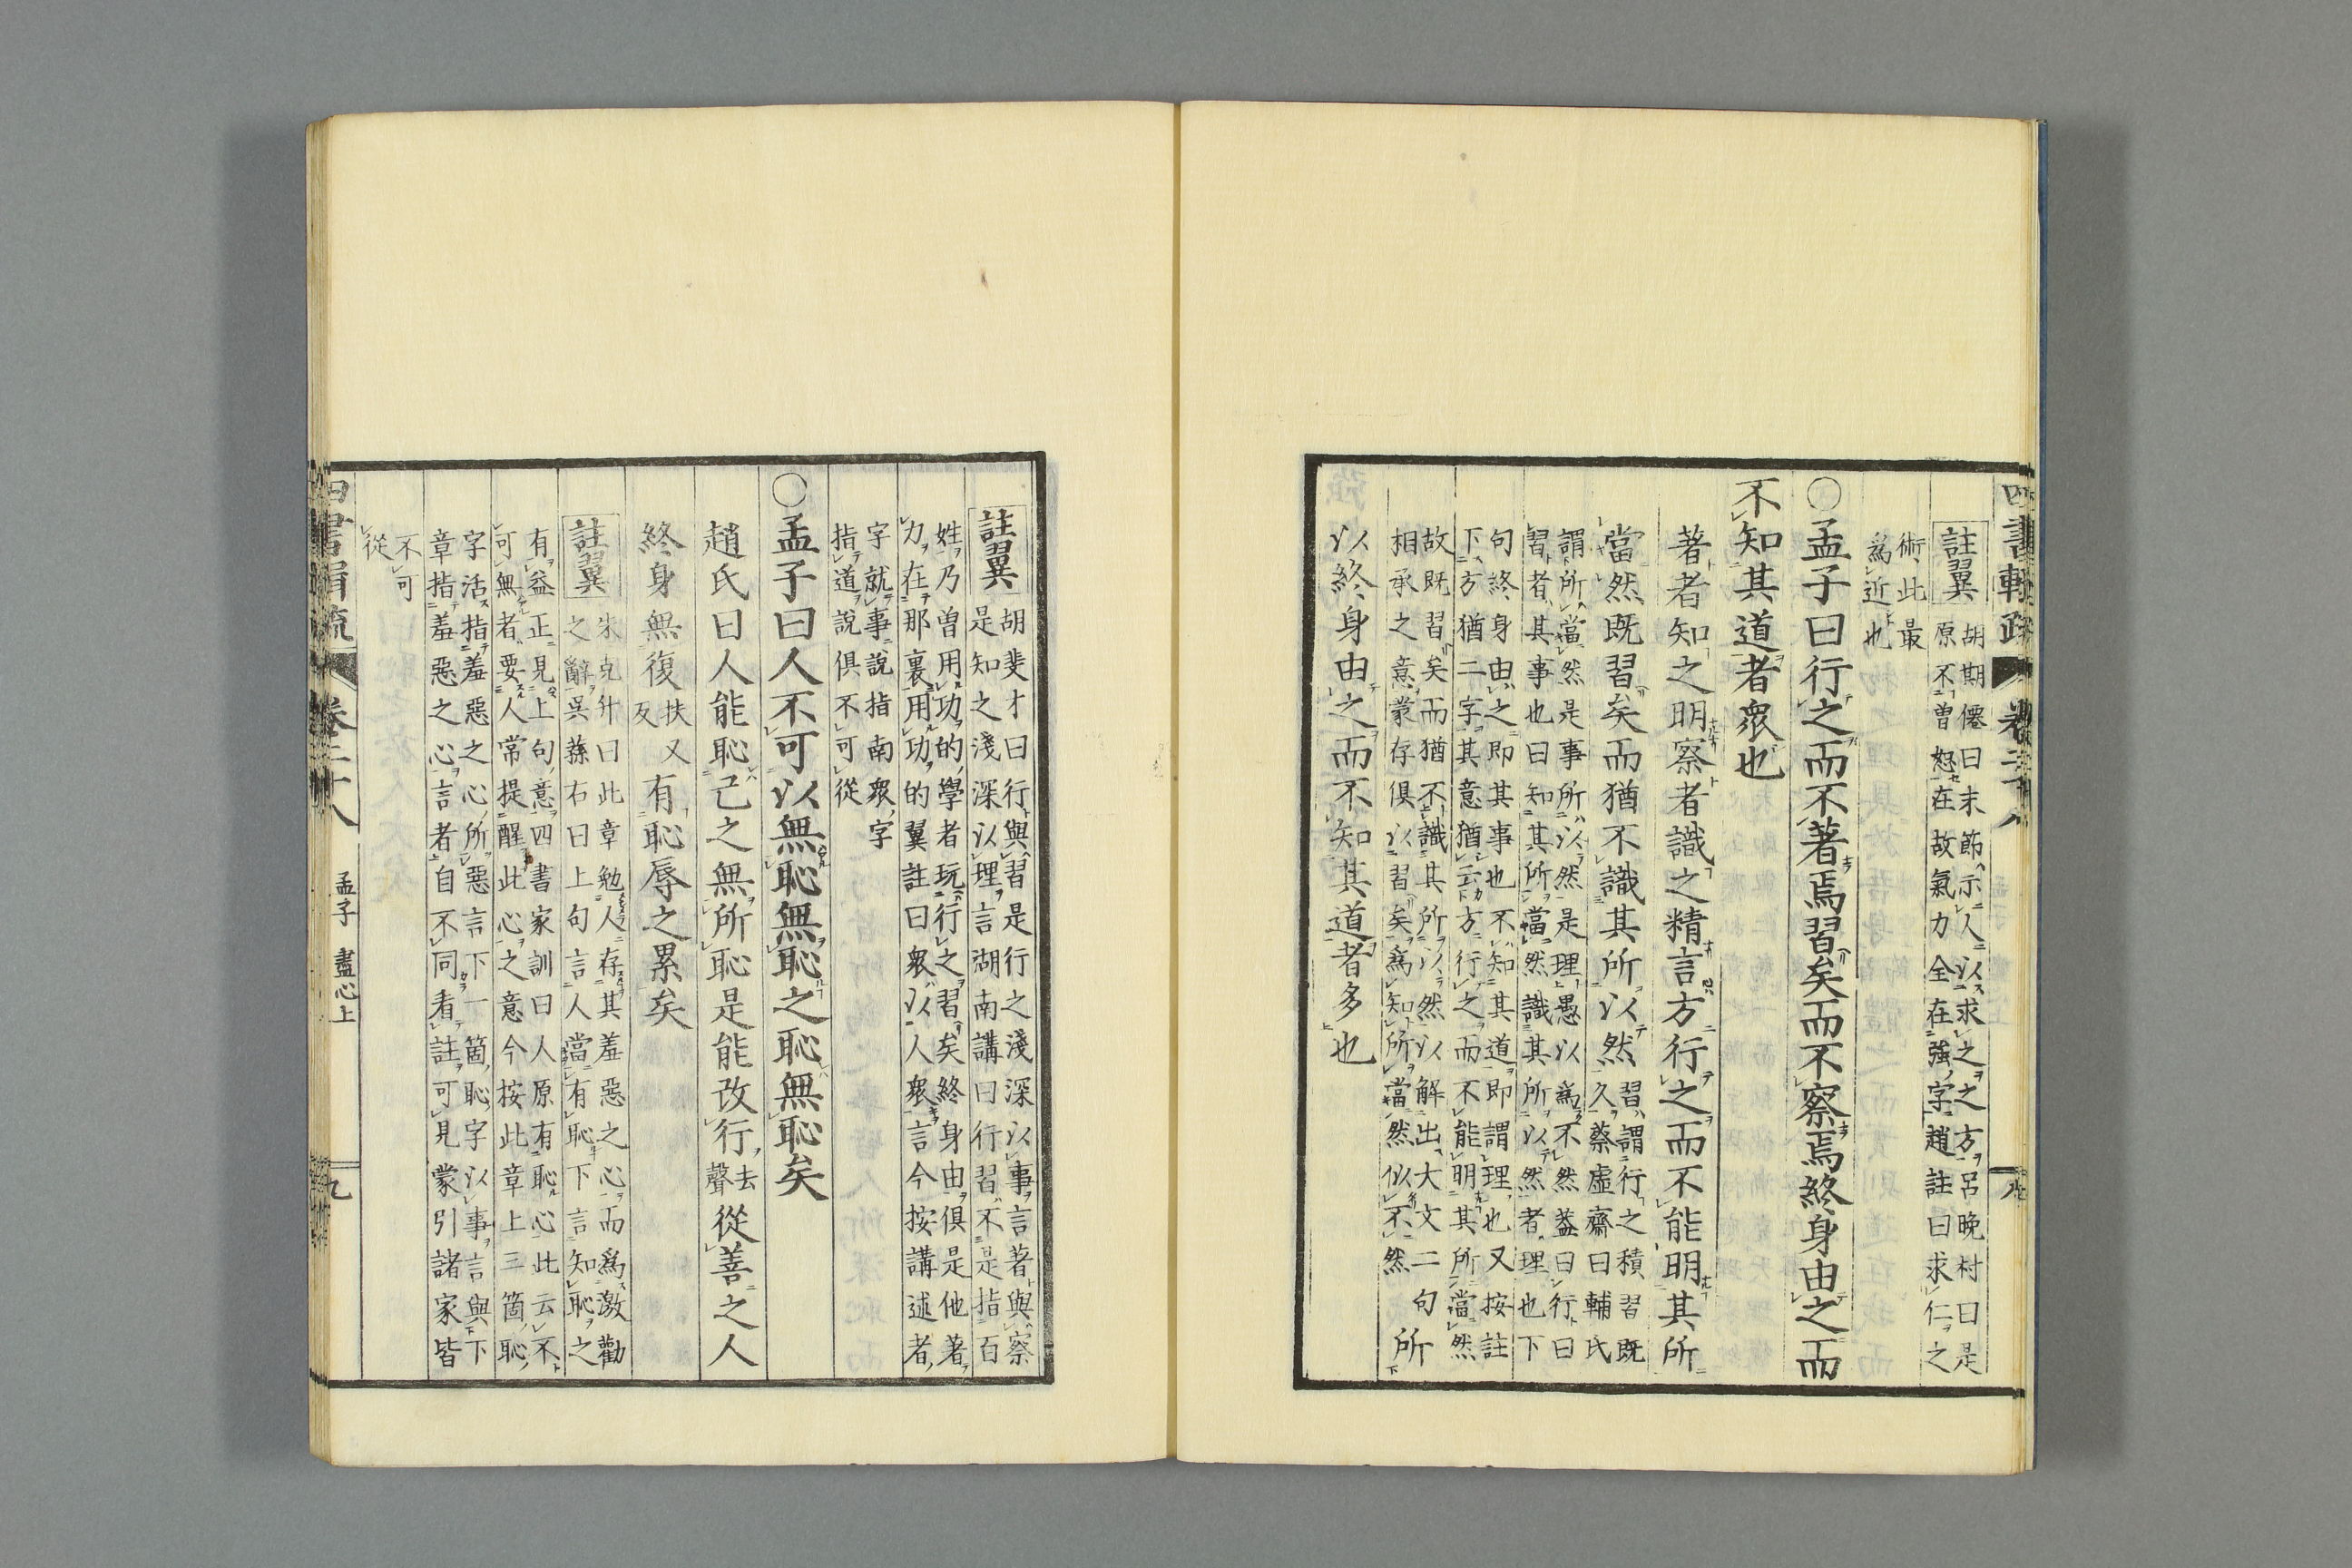 四書輯疏 卷二十八 八
註翼 胡期僊曰末節示人以求之之方呂晚村曰是
原不曾恕在故氣力全在強字趙註曰求仁之
術此最
爲近也
○孟子曰行之而不著焉習矣而不察焉終身由之而
不知其道者衆也
著者知之明察者識之精言方行之而不能明其所
當然既習矣而猶不識其所以然 習謂行之積習既
久蔡虛齋曰輔氏
謂所當然是事所以然是理愚以爲不然蓋曰行曰
習者其事也曰知其所當然識其所以然者理也下
句終身由之即其事也不知其道即謂理也又按註
下方猶二字其意猶云方行之而不能明其所當然
故既習矣而猶不識其所以然以解出大文二句
相承之意蒙存俱以習矣爲知所當然似不然 所
以終身由之而不知其道者多也
註翼 胡斐才曰行與習是行之淺深以事言著與察
是知之淺深以理言湖南講曰行習不是指百
姓乃曾用功的學者玩行之習矣終身由俱是他著
力在那裏用功的翼註曰衆以人衆言今按講述者
字就事說指南衆字
指道說俱不可從
○孟子曰人不可以無恥無恥之恥無恥矣
趙氏曰人能恥己之無所恥是能改行去聲從善之人
終身無復扶又反有恥辱之累矣
註翼 朱克升曰此章勉人存其羞惡之心而爲激勸
之辭吳蓀右曰上句言人當有恥下言知恥之
有益正見上句意四書家訓曰人原有恥心此云不
可無者要人常提醒此心之意今按此章上三箇恥
字活指羞惡之心所惡言下一箇恥字以事言與下
章指羞惡之心言者自不同看註可見蒙引諸家皆
不可
從
四書輯疏 卷二十八 孟子 盡心上 九